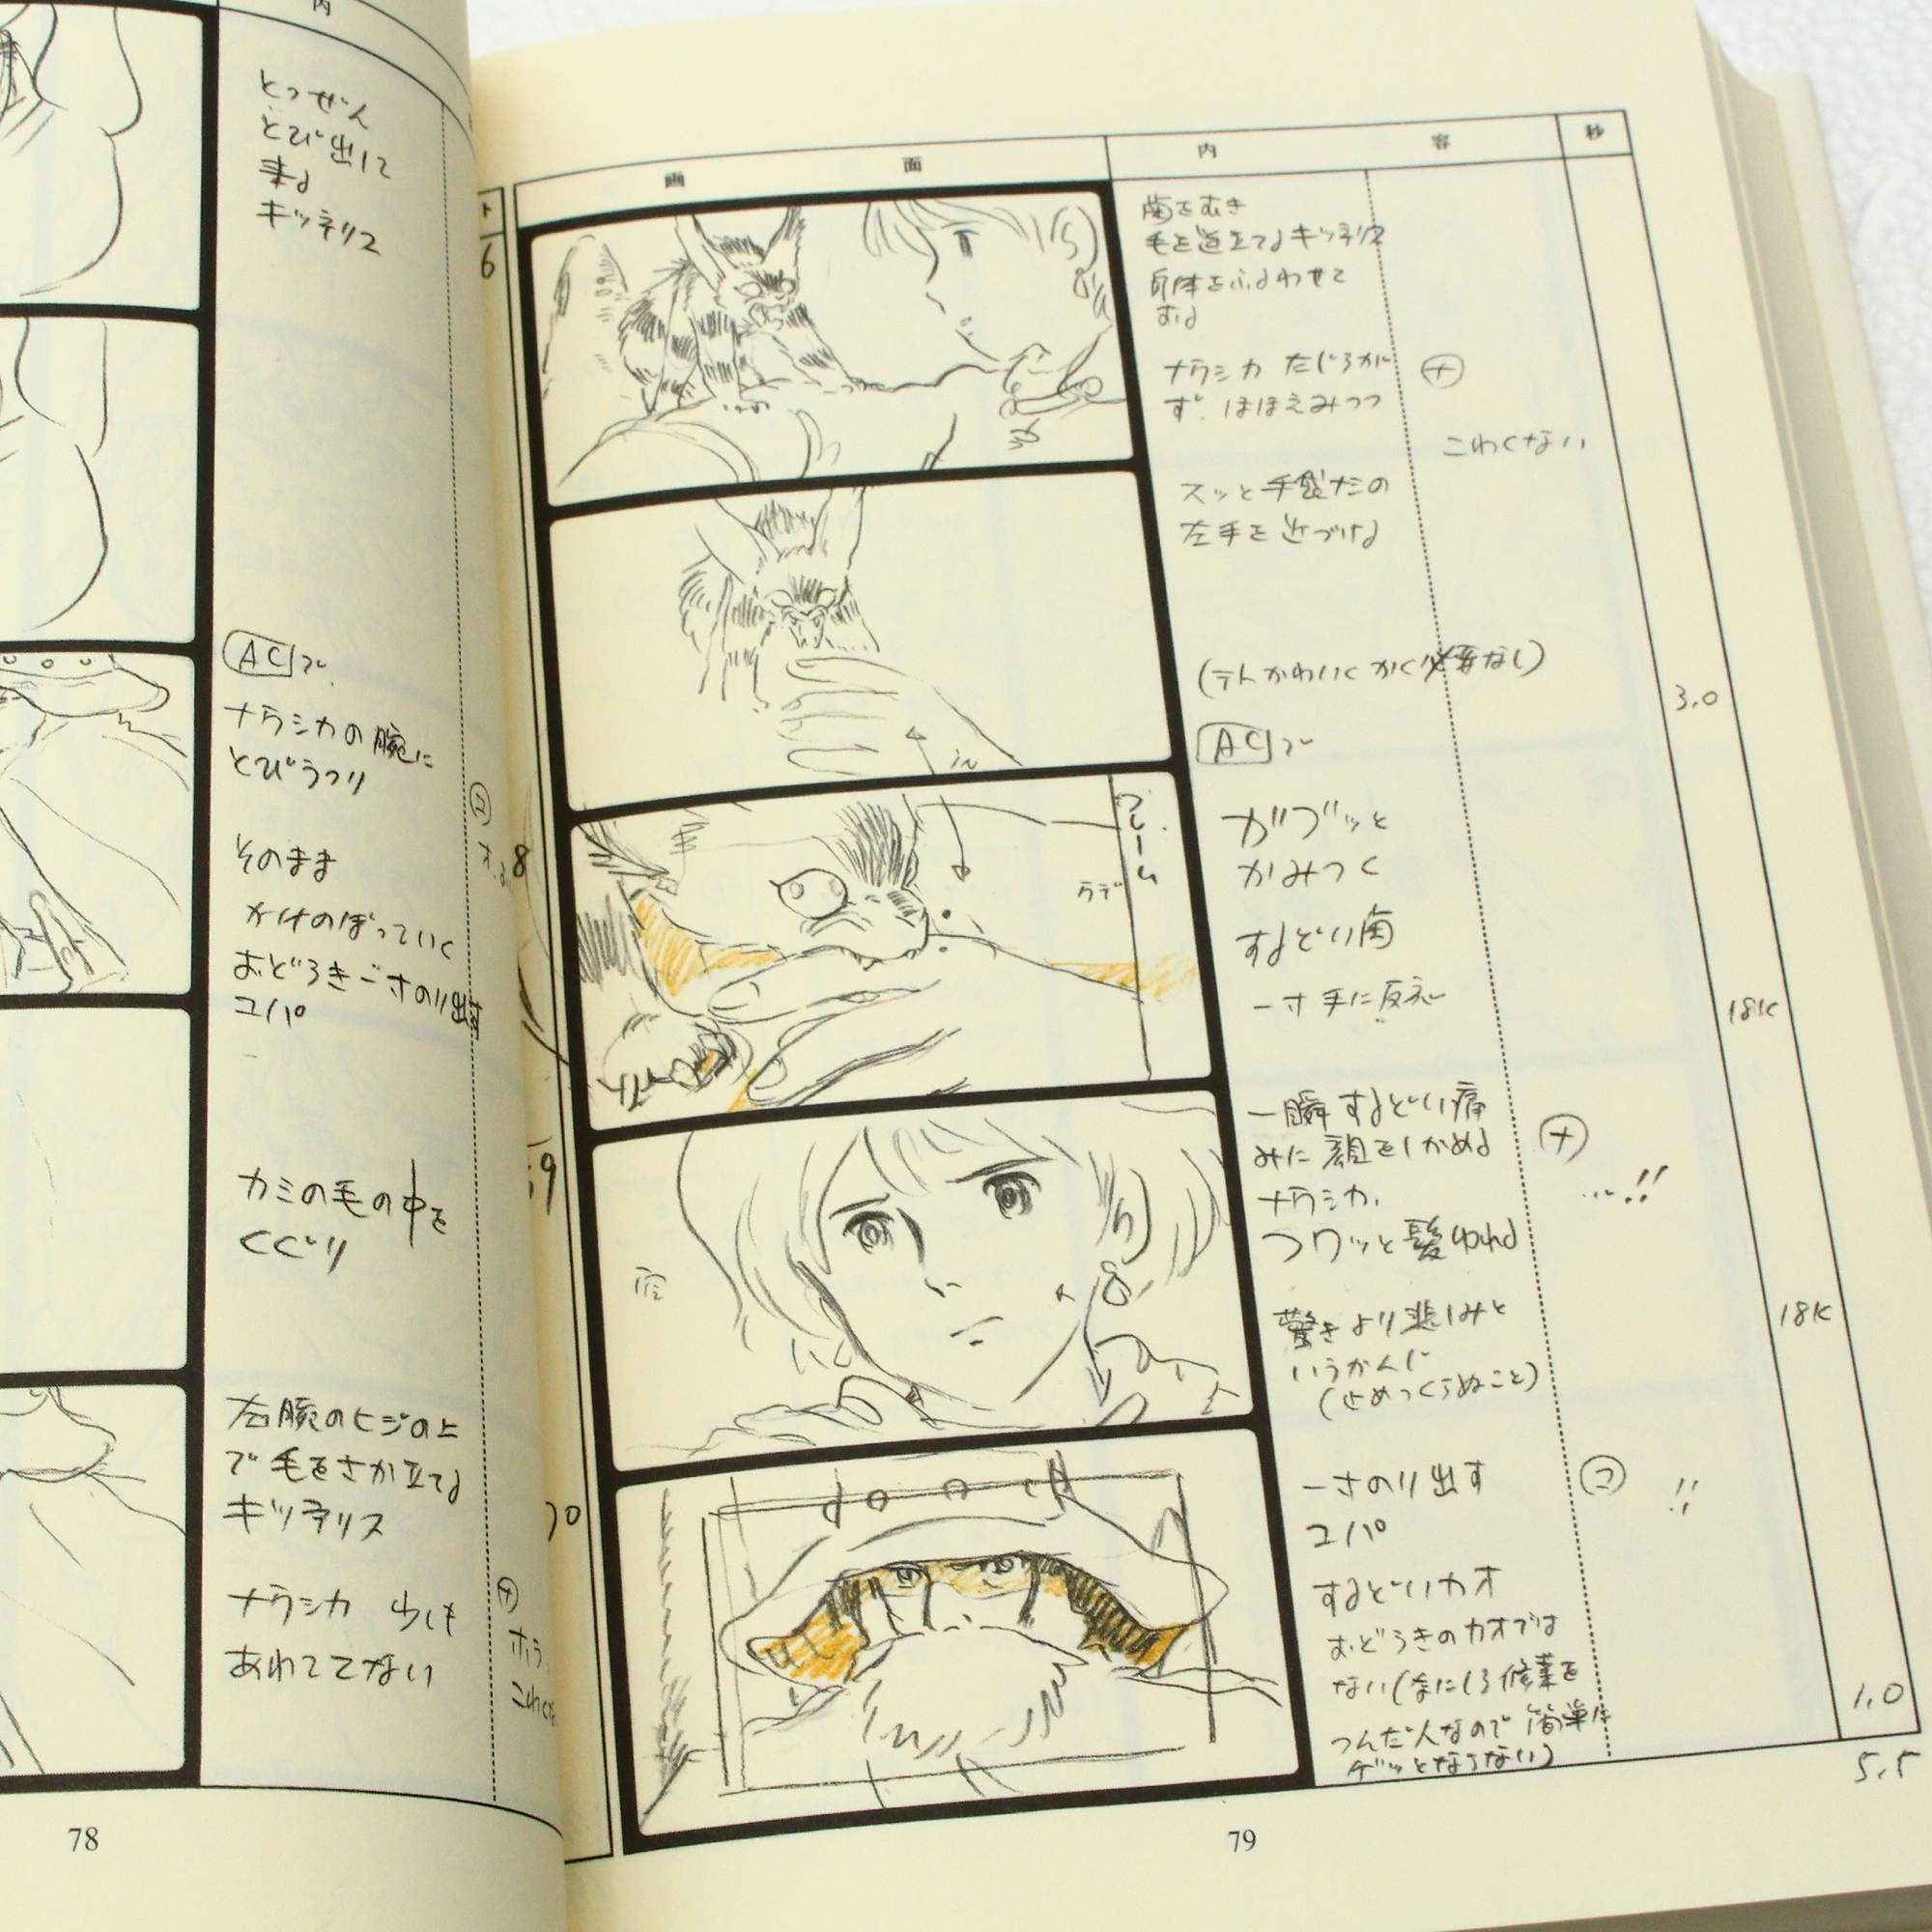 内
とつぜん
とび出して
来る
キツネリス
ACで
ナウシカの腕に
とびうつり
そのまま
かけのぼっていく
おどろき一寸のり出す
ユパ
カミの毛の中を
くぐり
右腕のヒジの上
で毛をさか立てる
キツネリス
ナウシカ 少しも
あわててない
ユ
ナ
ホラ
78
ト
画面
内容
秒
6
歯をむき
毛を逆立てるキツネリス
身体をふるわせて
ナウシカ たじろが
ず、ほほえみつつ
ナ
こわくない
スッと手袋ナシの
左手を近づける
in
(テトかわいくかく必要なし)
3.0
ACで
8
フレーム
ウデ
ガブッと
かみつく
するどい歯
一寸手に反応
18K
9
空
一瞬するどい痛
みに顔をしかめる
ナウシカ、
フワッと髪ゆれる
ナ
…!!
驚きより悲しみと
いうかんじ
(止めつくらぬこと)
18K
70
一寸のり出す
ユパ
ユ
!!
するどいカオ
おどろきのカオでは
ない(なにしろ修業を
つんだ人なので簡単に
ゲッとならない)
1.0
5.5
79